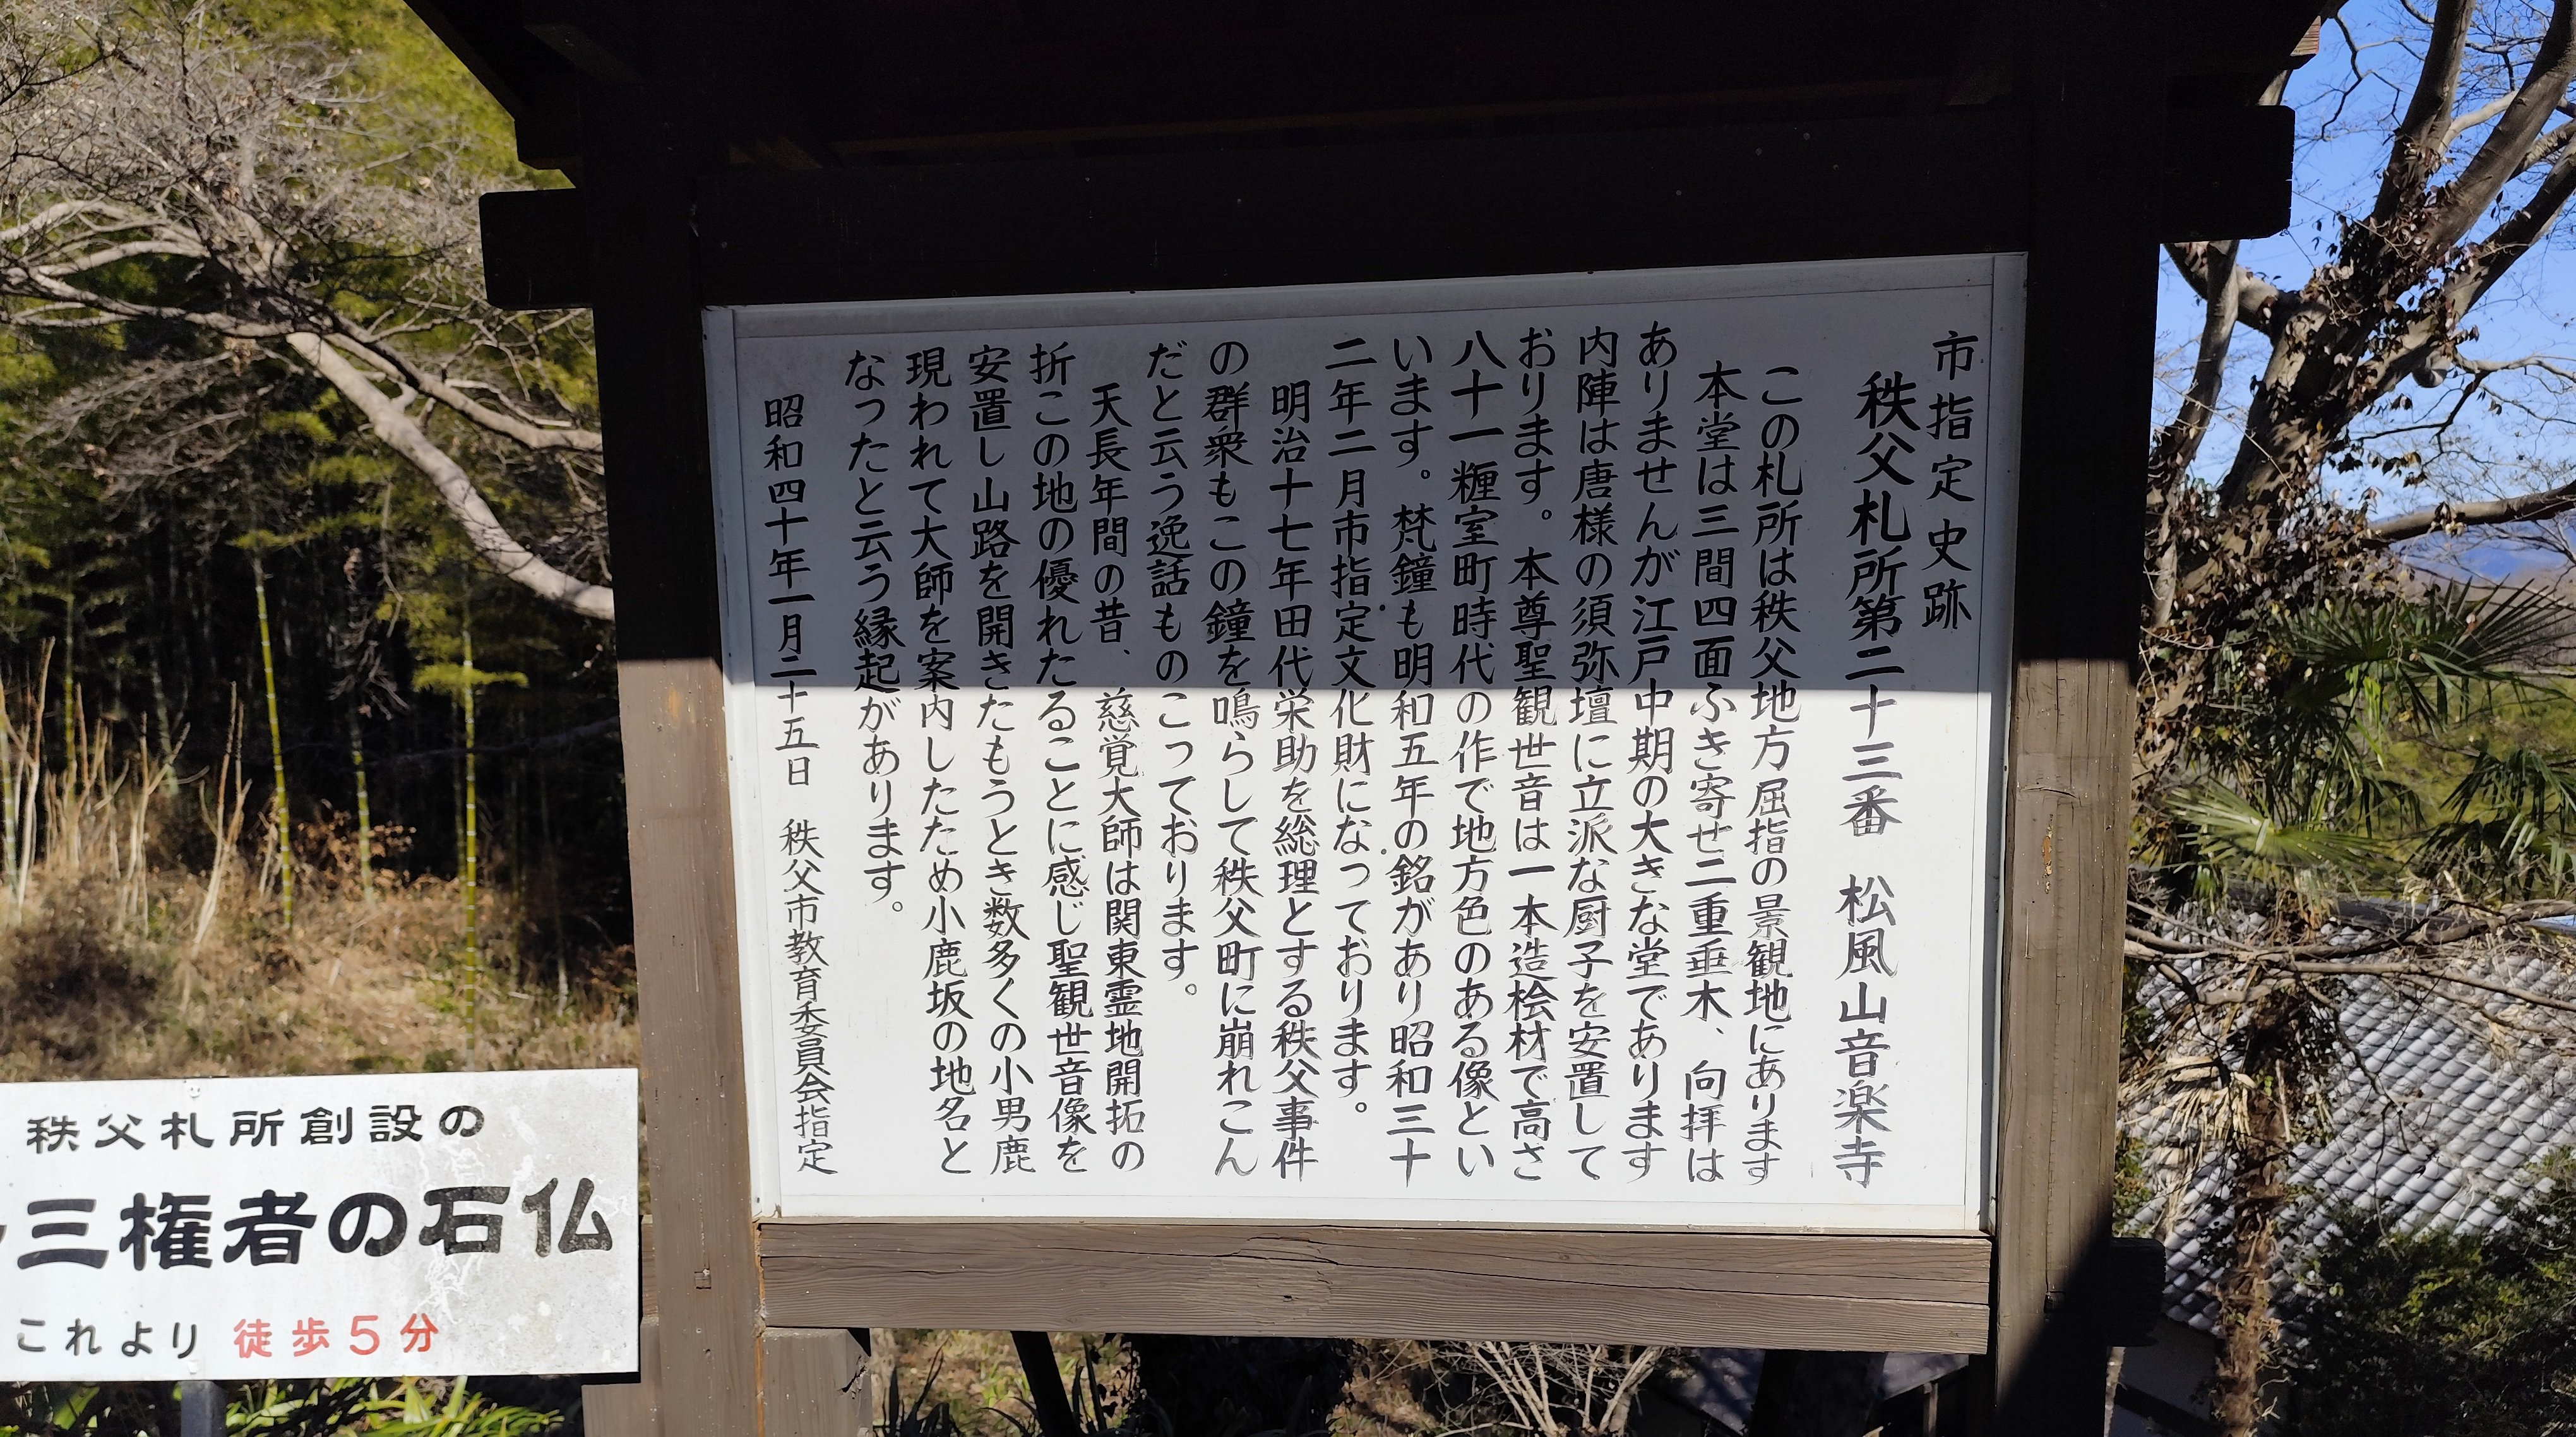 市指定史跡
秩父札所第二十三番　松風山音楽寺
この札所は秩父地方屈指の景観地にあります
本堂は三間四面ふき寄せ二重垂木、向拝は
ありませんが江戸中期の大きな堂であります
内陣は唐様の須弥壇に立派な厨子を安置して
おります。本尊聖観世音は一本造桧材で高さ
八十一糎室町時代の作で地方色のある像とい
います。梵鐘も明和五年の銘があり昭和三十
二年二月市指定文化財になっております。
明治十七年田代栄助を総理とする秩父事件
の群衆もこの鐘を鳴らして秩父町に崩れこん
だと云う逸話ものこっております。
天長年間の昔、慈覚大師は関東霊地開拓の
折この地の優れたることに感じ聖観世音像を
安置し山路を開きたもうとき数多くの小男鹿
現われて大師を案内したため小鹿坂の地名と
なったと云う縁起があります。
昭和四十年一月二十五日　秩父市教育委員会指定
秩父札所創設の
三権者の石仏
これより徒歩5分